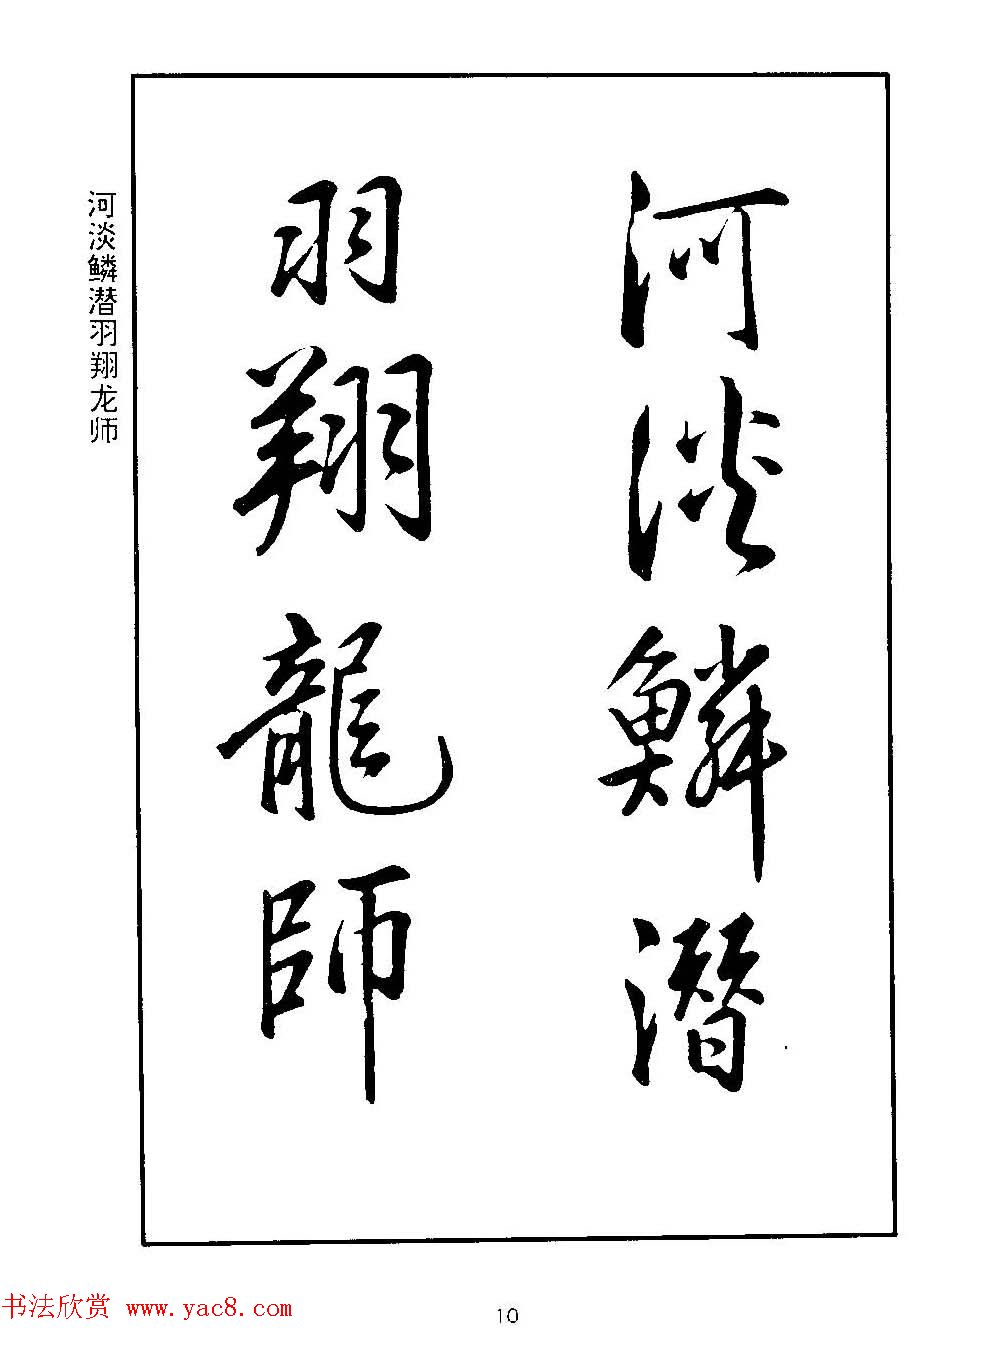 河淡鳞潜
羽翔龍師
河淡鳞潜羽翔龙师
书法欣赏 www.yac8.com
10